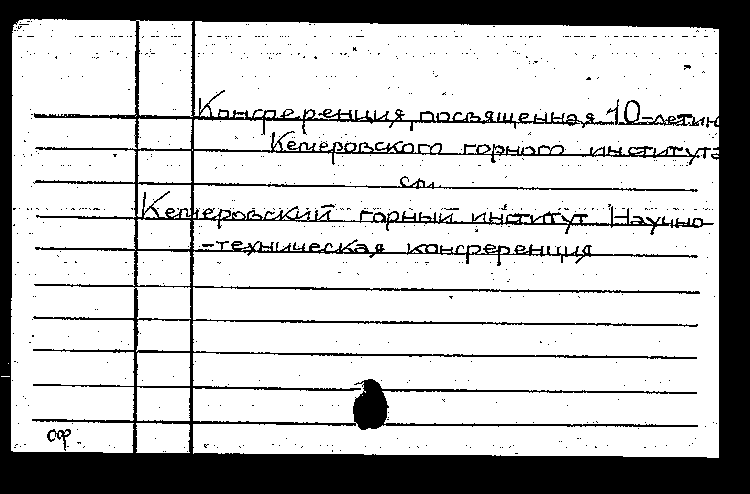 Конференция, посвященная 10-летию
Кемеровского горного института
см.
Кемеровский горный институт Научно-
-техническая конференция
ОФ.